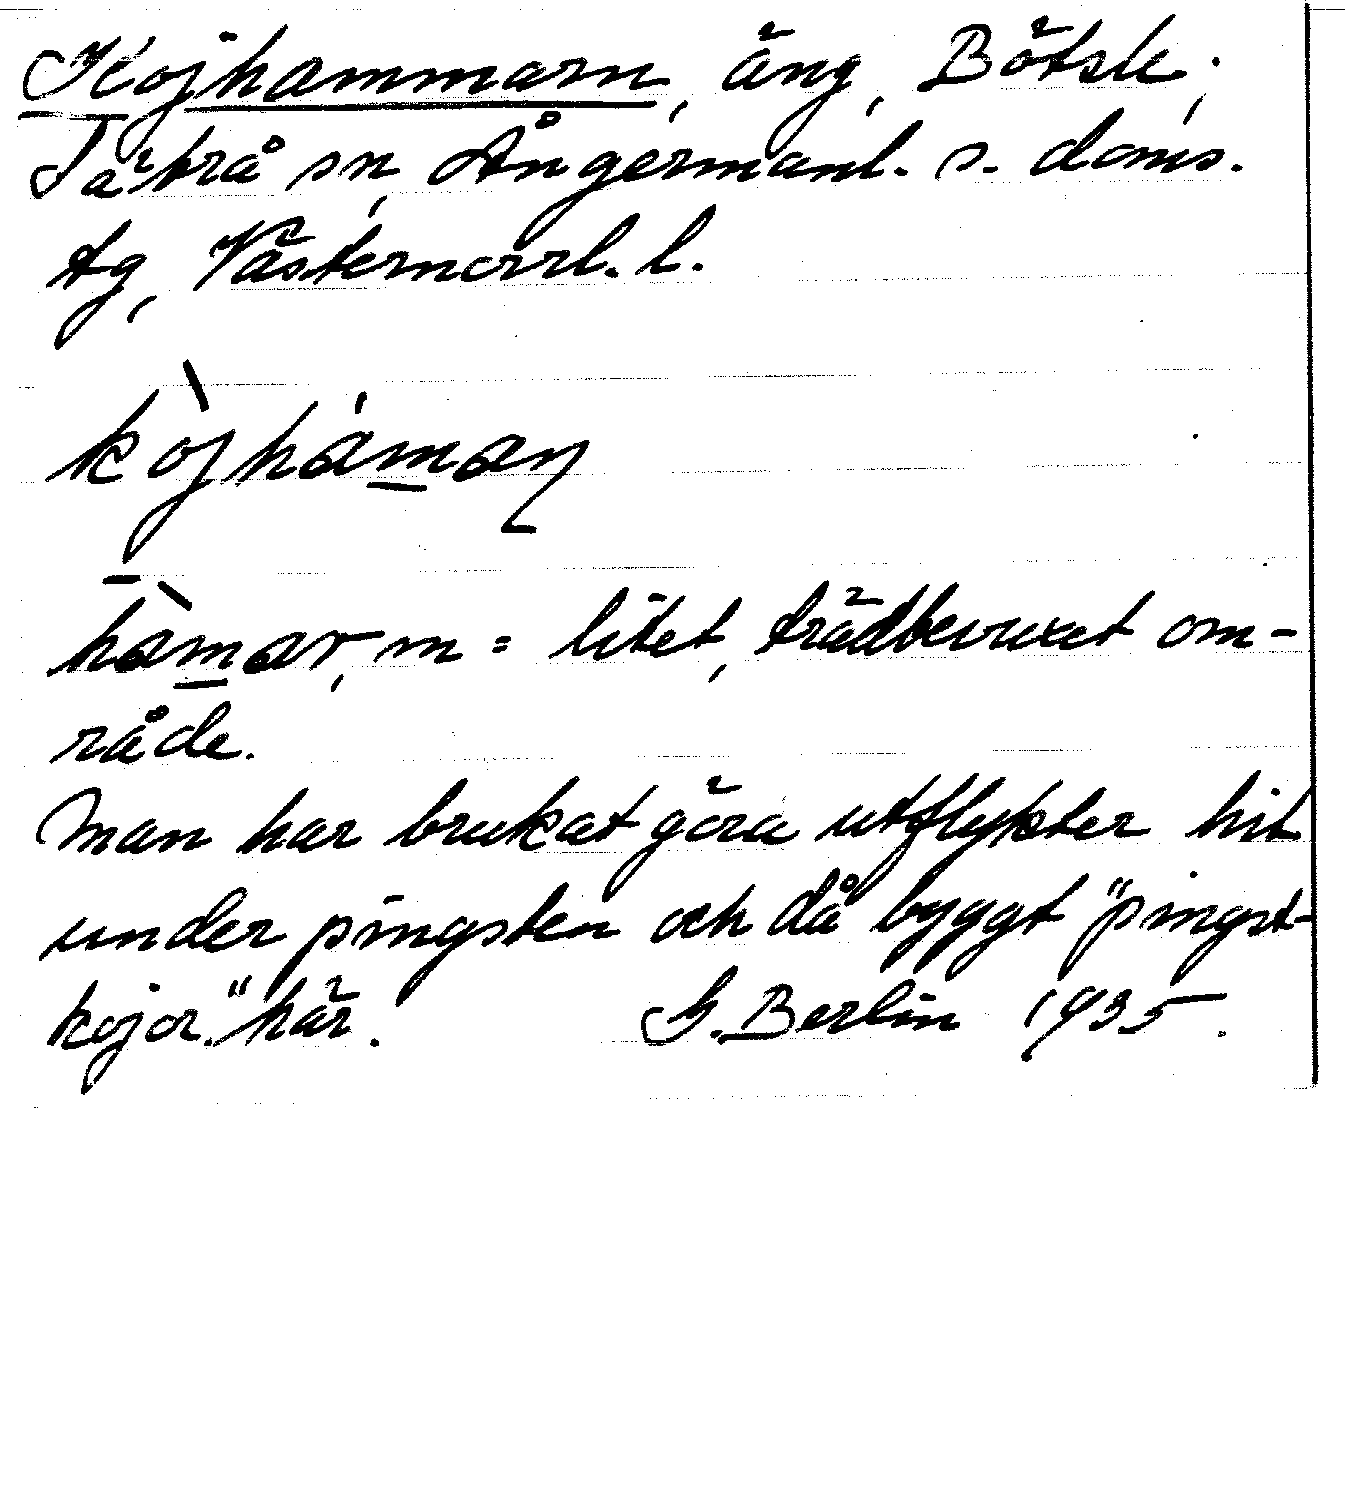 Kojhammarn, äng, Bötsle,
Tåtrå sn, Ångermanl. s. doms.
tg, Västernorrl. l.
kòjháman
hàmar, m = litet, trädbevuxet om-
råde.
Man har brukat göra utflykter hit
under pingsten och då byggt "pingst-
kojor" här. G. Berlin 1935.